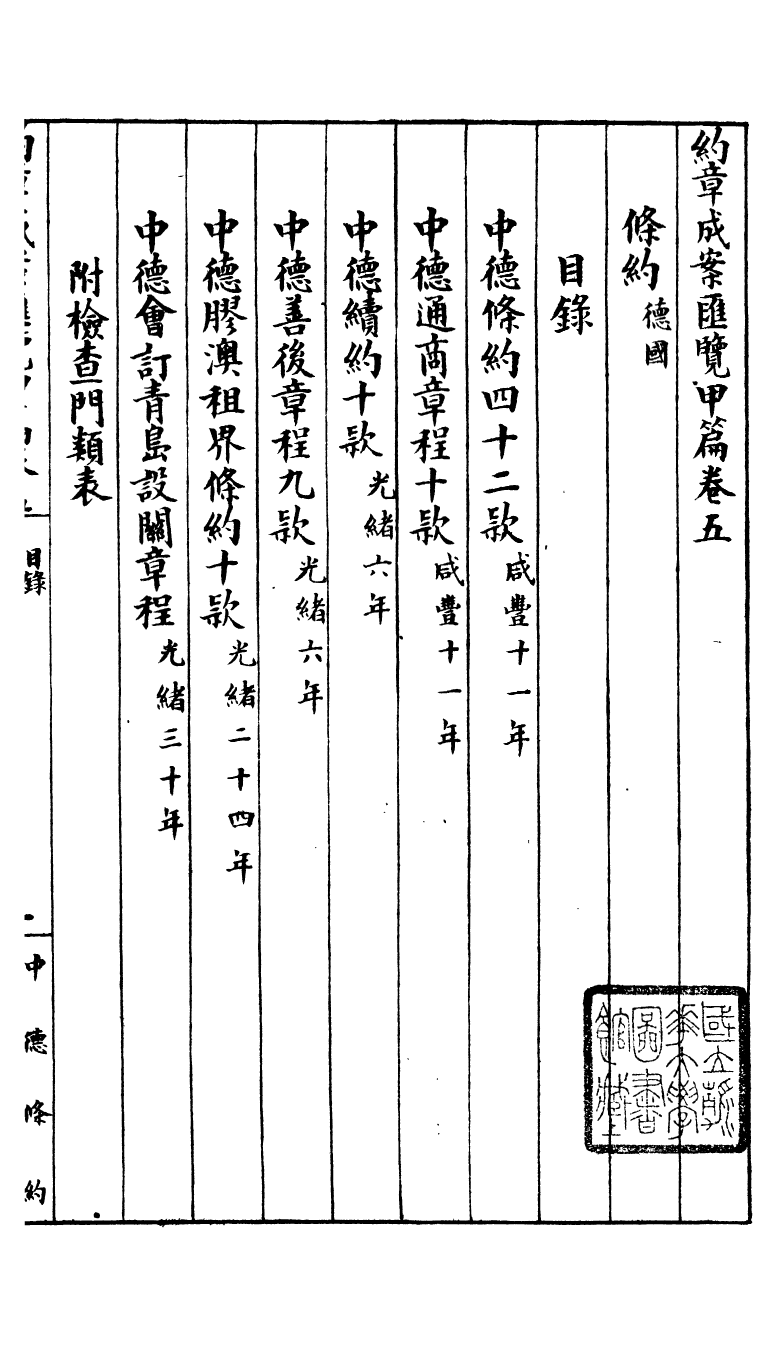 約章成案匯覽甲篇卷五
條約 德國
目錄
中德條約四十二款 咸豐十一年
中德通商章程十款 咸豐十一年
中德續約十款 光緒六年
中德善後章程九款 光緒六年
中德膠澳租界條約十款 光緒二十四年
中德會訂青島設關章程 光緒三十年
附檢查門類表
目錄
中德條約
國立
大學
圖書
館藏